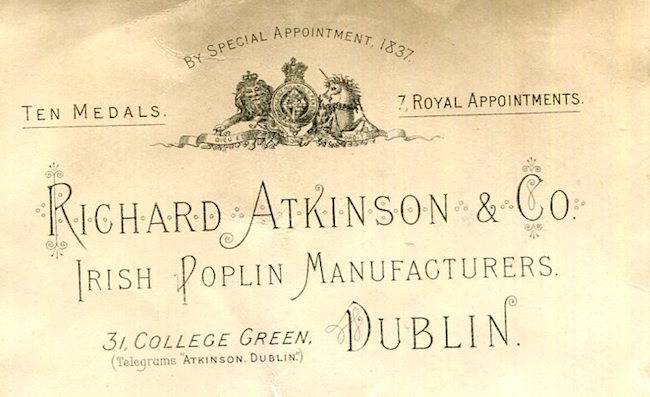 BY SPECIAL APPOINTMENT, 1837.
TEN MEDALS.
7, ROYAL APPOINTMENTS.
RICHARD ATKINSON & CO.
IRISH POPLIN MANUFACTURERS.
31, COLLEGE GREEN, DUBLIN.
(Telegrams "ATKINSON. DUBLIN.")